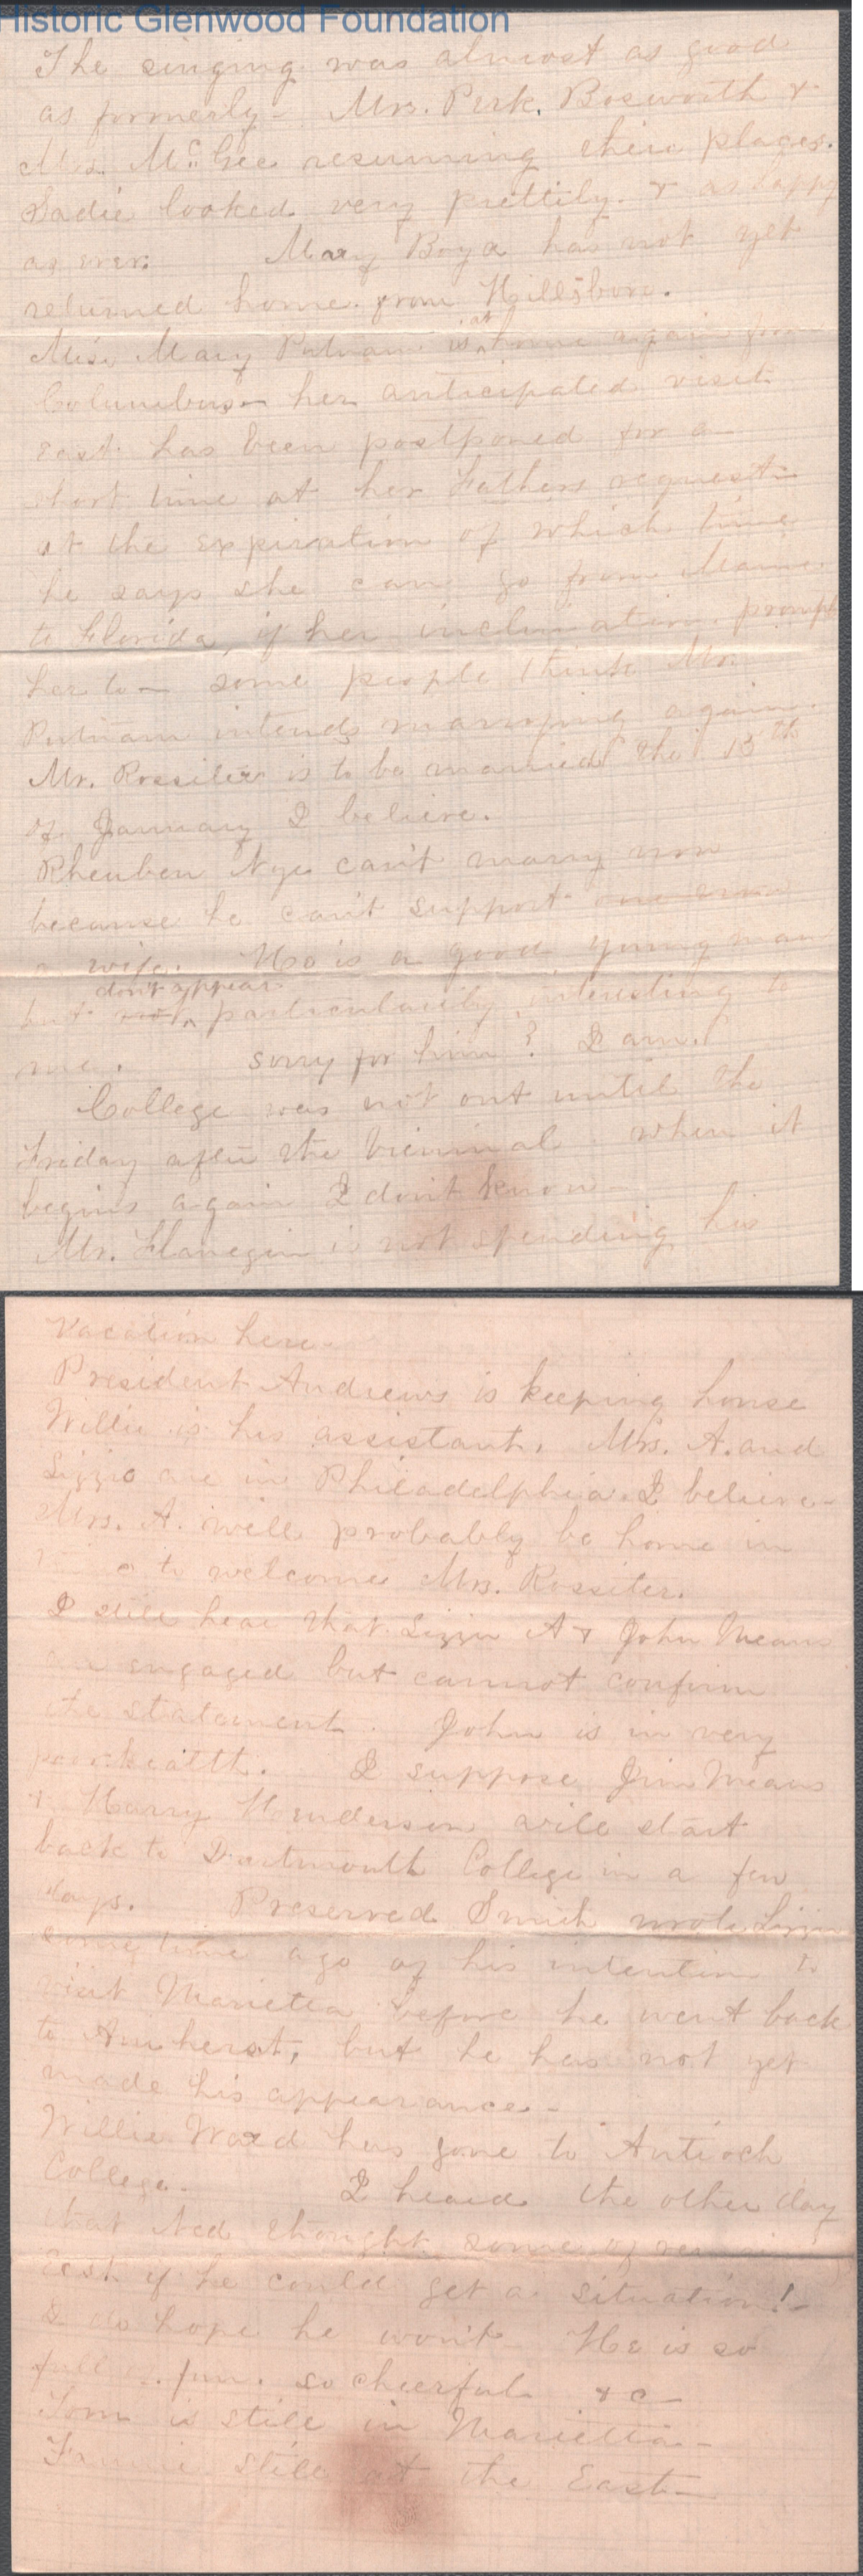 Historic Glenwood Foundation
The singing was almost as good
as formerly - Mrs. Perk. Bosworth &
Mrs. McGee resuming their places.
Sadie looked very prettily. & as happy
as ever. Mary Boya has not yet
returned home from Hillsboro.
Miss Mary Putnam is at home again from
Columbus - her anticipated visit
East has been postponed for a
short time at her Fathers request -
at the expiration of which time
he says she can go from Maine
to Florida, if her inclination prompt
her to - some people think Mr.
Putnam intends marrying again.
Mr. Rossiter is to be married the 15th
of January I believe.
Rheuben Nye can't marry now
because he can't support
a wife. He is a good young man
but don't appear particularily interesting to
me. sorry for him? I am.
College was not out until the
Friday after the Biennial when it
begins again I don't know -
Mr. Flanegin is not spending his
vacation here -
President Andrews is keeping house
Willie is his assistant. Mrs. A. and
Lizzie are in Philadelphia. I believe -
Mrs. A. will probably be home in
to welcome Mrs. Rossiter.
I still hear that Lizzie A & John Means
are engaged but cannot confirm
the statement. John is in very
poor health. I suppose Jim Means
& Harry Henderson will start
back to Dartmouth College in a few
days. Preserved Smith wrote Lizzie
some time ago of his intention to
visit Marietta before he went back
to Amherst, but he has not yet
made his appearance -
Willie Ward has gone to Antioch
College - I heard the other day
that Ned thought some of
East if he could get a situation! -
I do hope he won't He is so
full of fun. so cheerful &c -
Tom is still in Marietta -
Fannie still at the East -